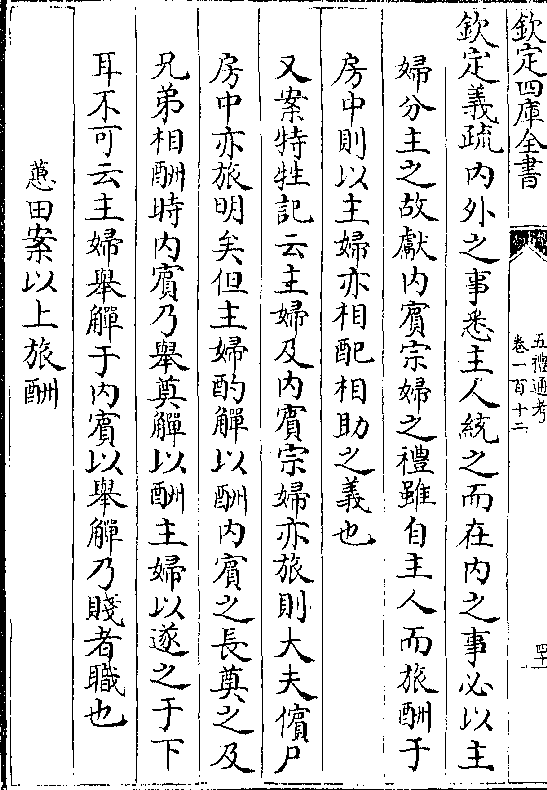 欽定四庫全書
五禮通考
卷一百十二
四十
欽定義疏内外之事悉主人統之而在内之事必以主
婦分主之故獻内賓宗婦之禮雖自主人而旅酬于
房中則以主婦亦相配相助之義也
又案特牲記云主婦及内賓宗婦亦旅則大夫儐尸
房中亦旅明矣但主婦酌觶以酬内賓之長奠之及
兄弟相酬時内賓乃舉奠觶以酬主婦以遂之于下
耳不可云主婦舉觶于内賓以舉觶乃賤者職也
蕙田案以上旅酬